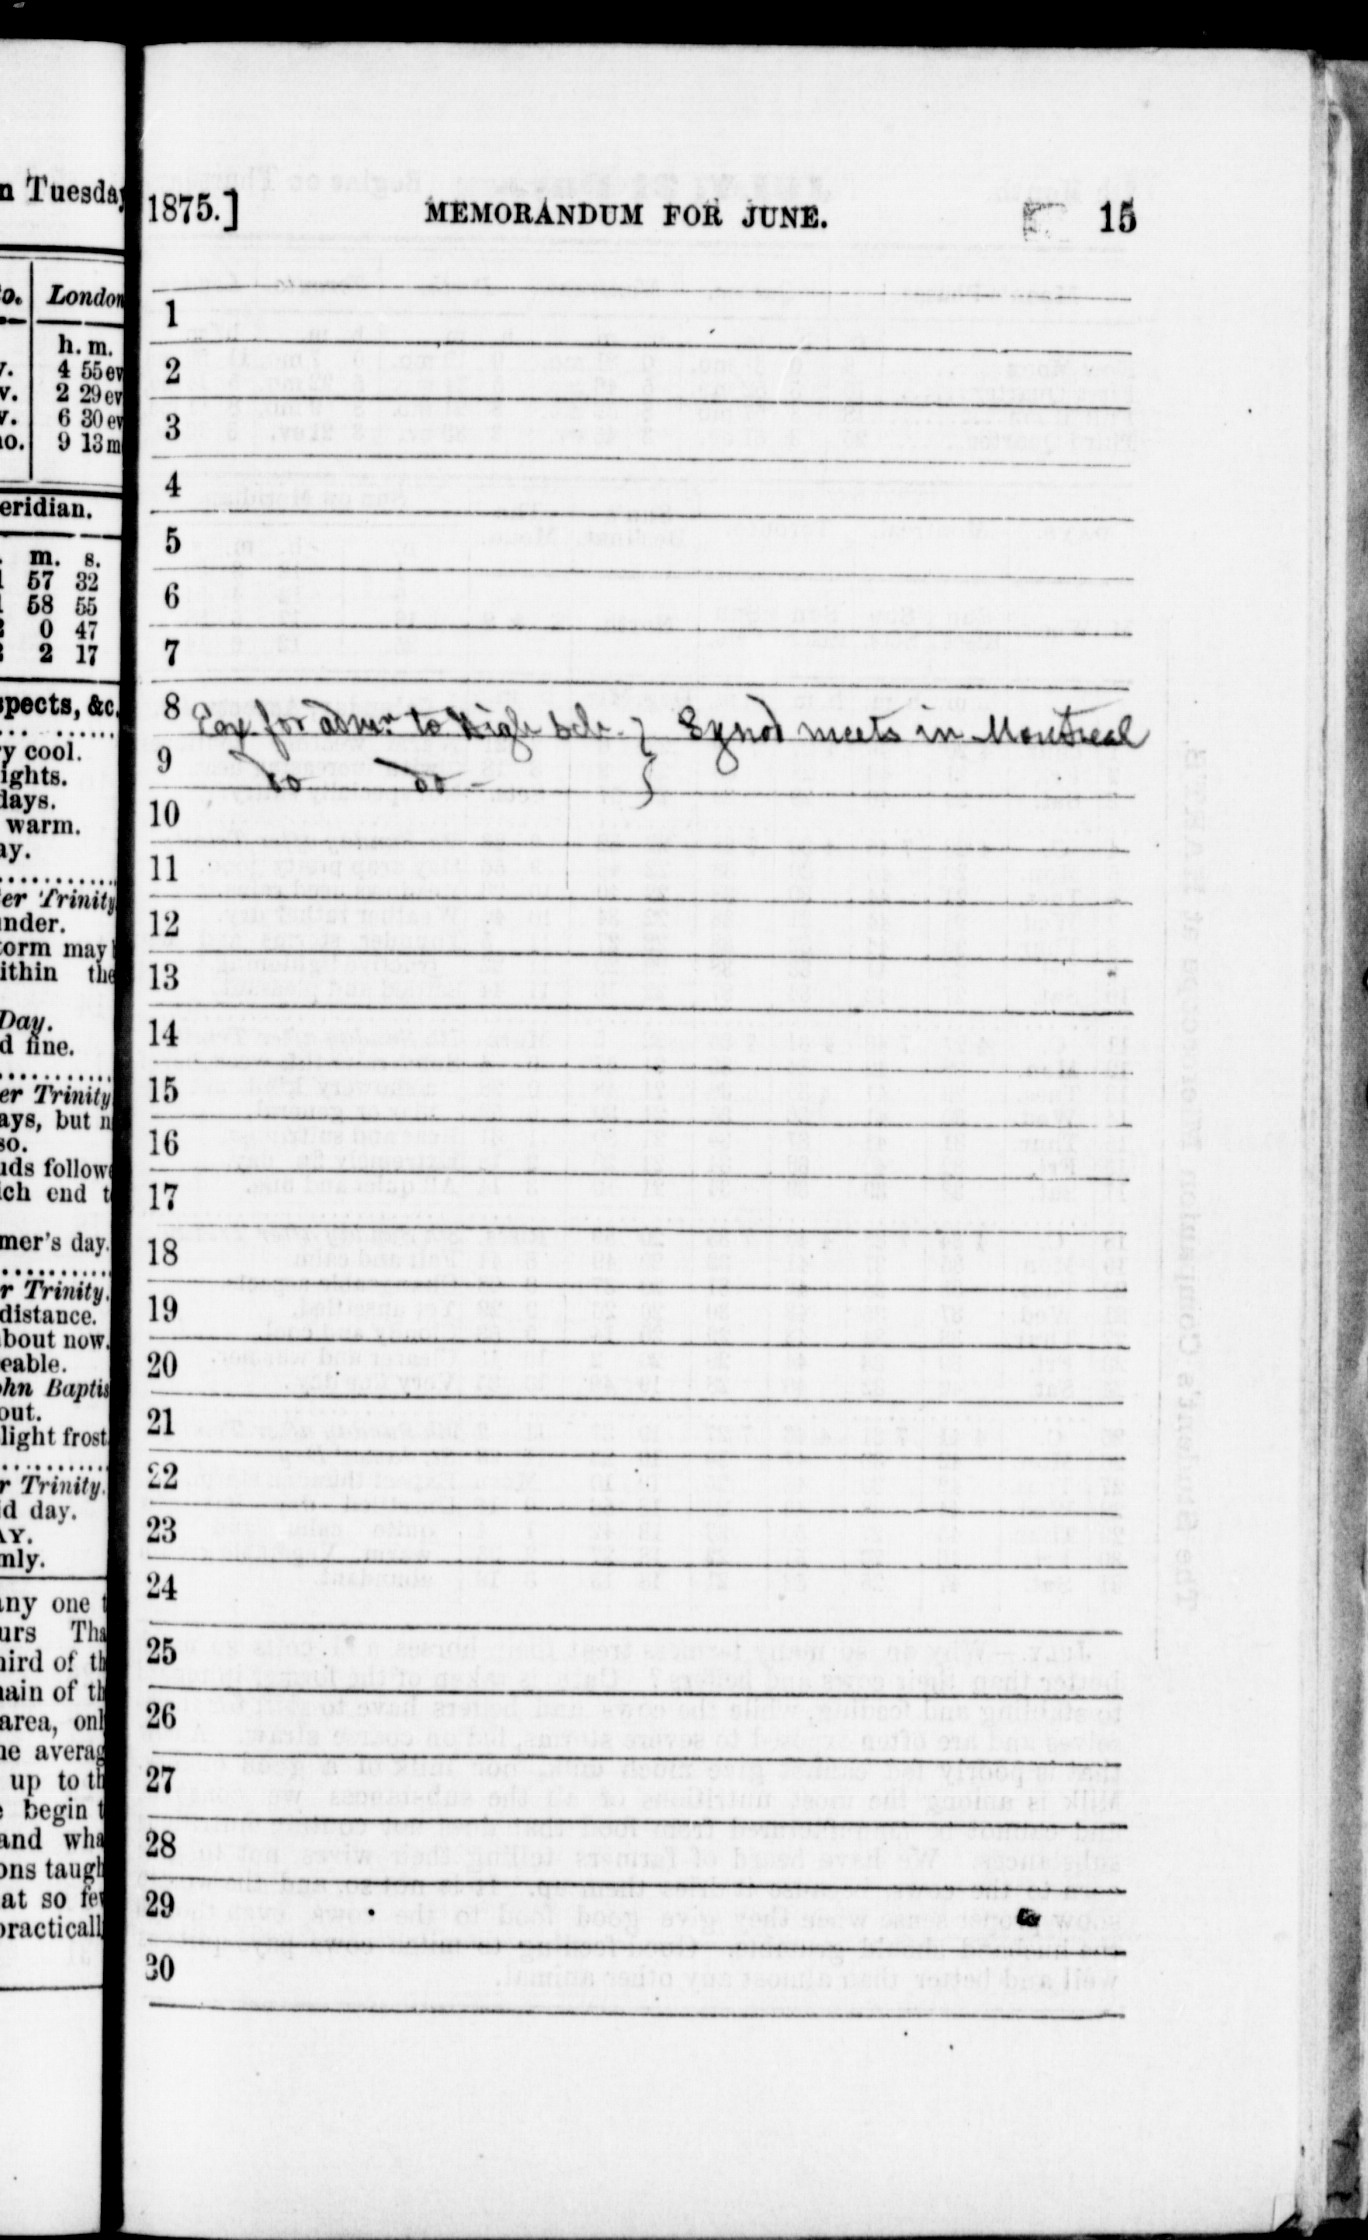 n Tuesday
o. London
h. m.
v. 4 55 ev
v. 2 29 ev
v. 6 30 ev
no. 9 13 m
eridian.
m. s.
57 32
58 55
0 47
2 17
spects, &c.
y cool.
ights.
days.
warm.
ay.
er Trinity
under.
torm may
ithin the
Day.
d fine.
er Trinity
ays, but n
so.
uds follow
ich end t
mer's day.
r Trinity.
distance.
about now.
eable.
ohn Baptis
out.
light frost.
r Trinity.
id day.
AY.
mly.
any one t
urs Tha
hird of th
main of th
area, onl
he averag
up to th
begin t
and wha
ons taugh
at so few
practicall
1875.] MEMORANDUM FOR JUNE. 15
1
2
3
4
5
6
7
8 Exn for admn to High Sch. } Synod meets in Montreal
9 Do Do - }
10
11
12
13
14
15
16
17
18
19
20
21
22
23
24
25
26
27
28
29
30